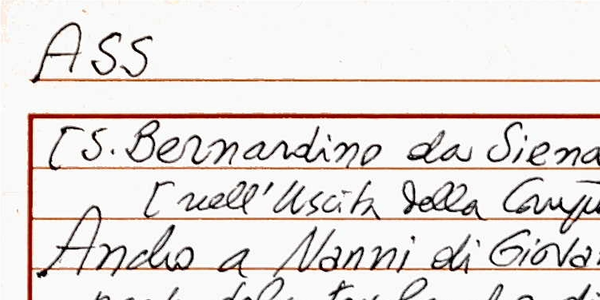 ASS
[S. Bernardino da Siena
[nell'Uscita della
Ando a Nanni di Giova